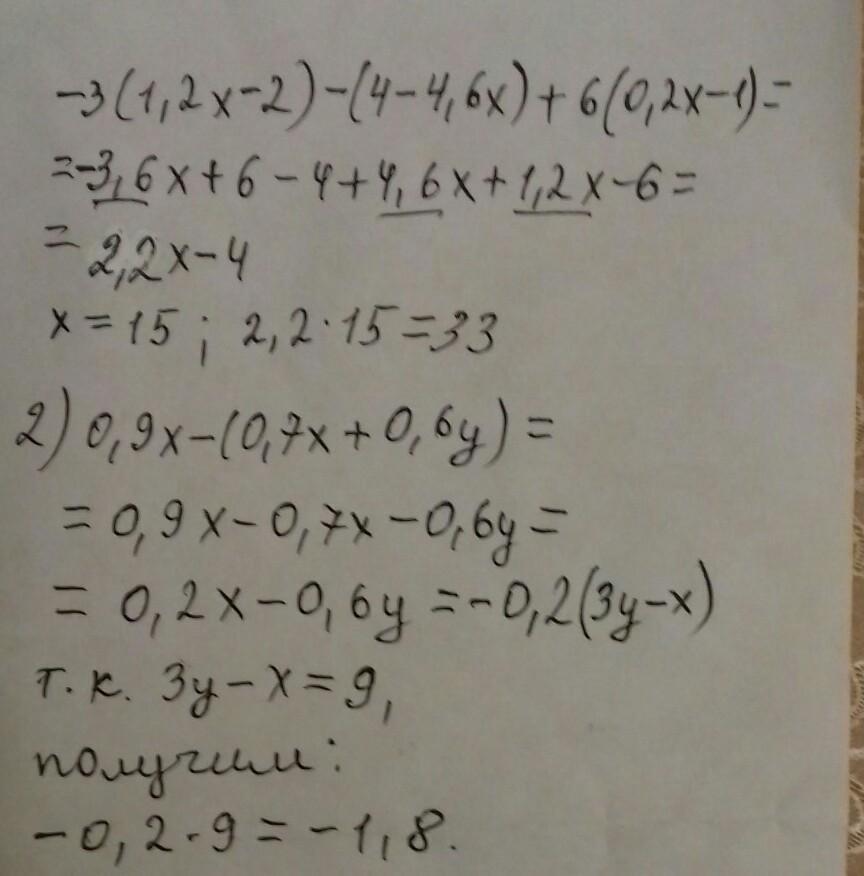 -3(1,2x-2)-(4-4,6x)+6(0,2x-1)=
=-3,6x+6-4+4,6x+1,2x-6=
= 2,2x-4
x=15; 2,2·15=33
2) 0,9x-(0,7x+0,6y)=
= 0,9x-0,7x-0,6y=
= 0,2x-0,6y=-0,2(3y-x)
т.к. 3y-x=9,
получим:
-0,2·9=-1,8.